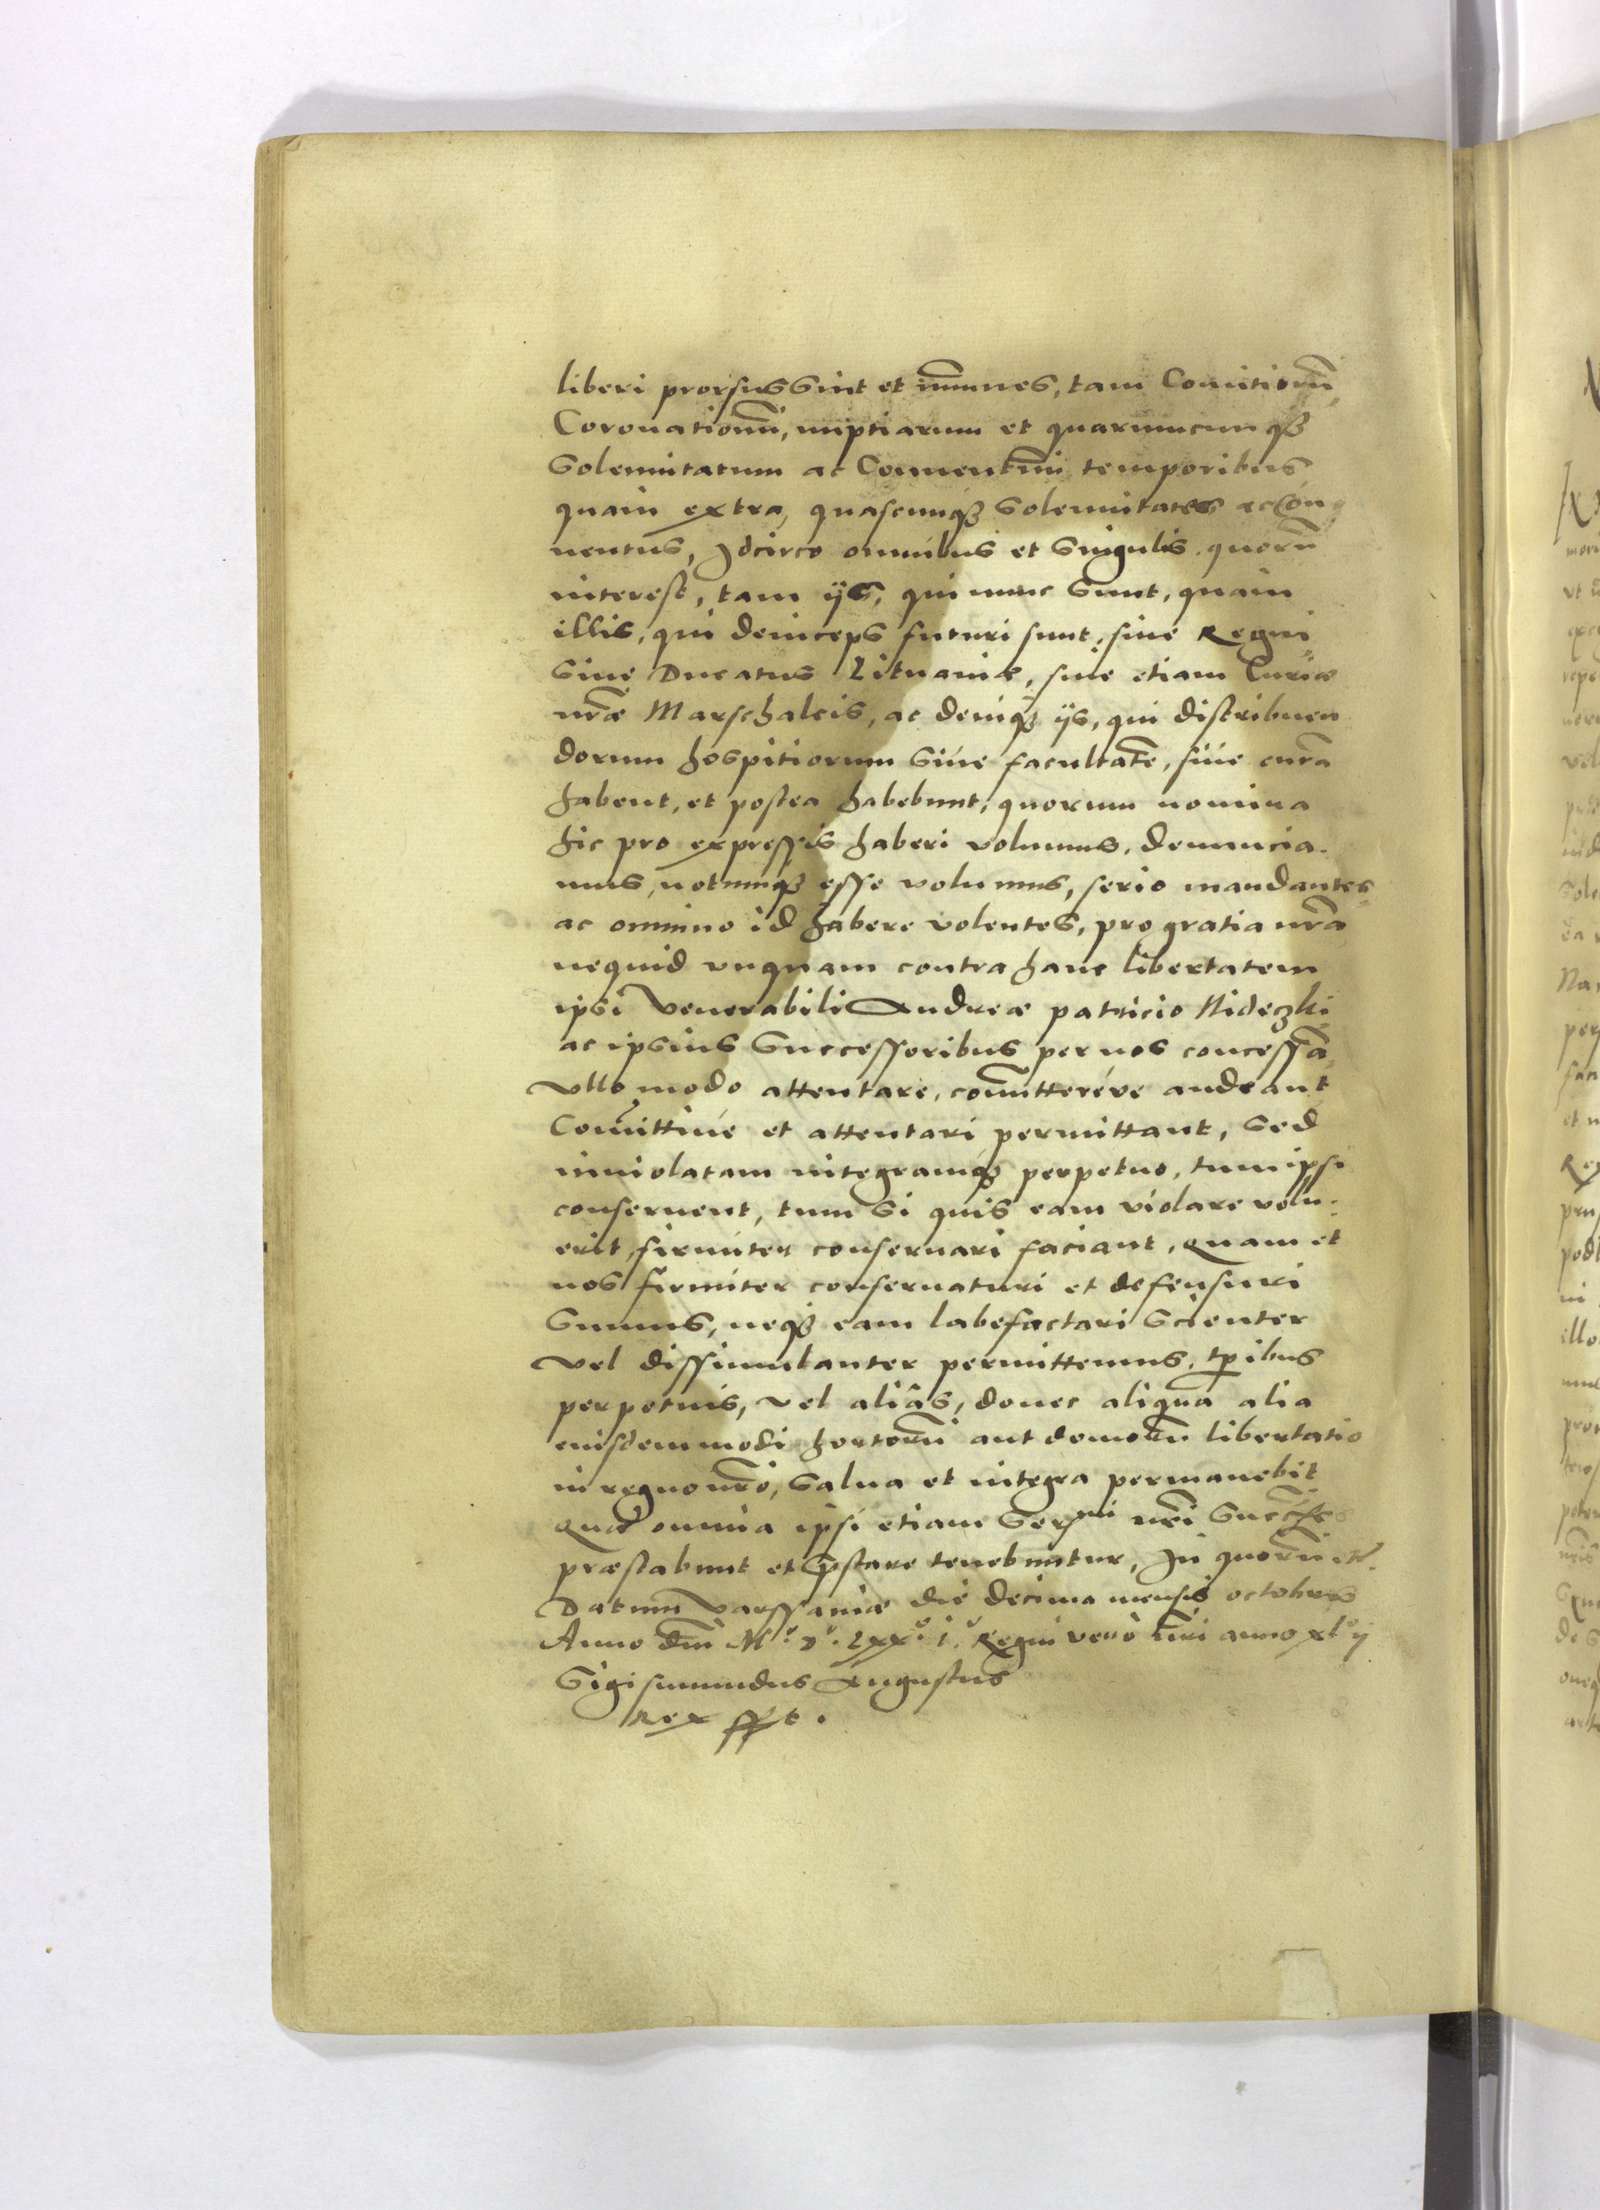 liberi prorsus sint et im̃unes, tam Comitiorũ
Coronationũ, nuptiarum et quarumcunqȝ
Solemnitatum ac Conuentuũ temporibus
quam extra, quascunqȝ Solemnitates ac Con
uentus, Idcirco omnibus et Singulis quorũ
interest, tam ijs, qui nunc Sunt, quam
illis, qui deinceps futuri sunt, siue Regni
Siue Ducatus Lituaniæ, siue etiam Curiæ
nr̃æ Marschalcis, ac deniqȝ ijs, qui distribuen
dorum hospitiorum Siue facultatẽ, siue curã
habent, et postea habebunt, quorum nomina
hic pro expressis haberi volumus, denuncia.
mus, notumqȝ esse volumus, serio mandantes
ac omnino id habere volentes, pro gratia nr̃a
nequid vnquam contra hanc libertatem
ipsi Venerabili Andreæ patricio Nideczki
ac ipsius Successoribus per nos concessã
vllo modo attentare, com̃ittereúe audeant
Com̃ittiúe et attentari permittant, Sed
inuiolatam integramqȝ perpetuo, tum ipsi
conseruent, tum Si quis eam violare volu.
erit, firmiter conseruari faciant, quam et
nos firmiter conseruaturi et defensuri
Sumus, neqȝ eam labefactari Scienter
vel dissimulanter permittemus, tp̃ibus
perpetuis, vel aliâs, donec aliqua alia
eiusdemmodi hortorũ aut domorũ libertatio
in regno nr̃o, Salua et integra permanebit
Quæ omnia ipsi etiam Serᵐⁱ nr̃i Succ̃es
præstabunt et p̃stare tenebuntur, In quorũ etc.
Datum Varssauiæ die decima mensis octobris
Anno dñi Mº. Dº. LXXº. 1º. Regni verò nr̃i anno xlº ij
Sigismundus Augustus
Rex sst.